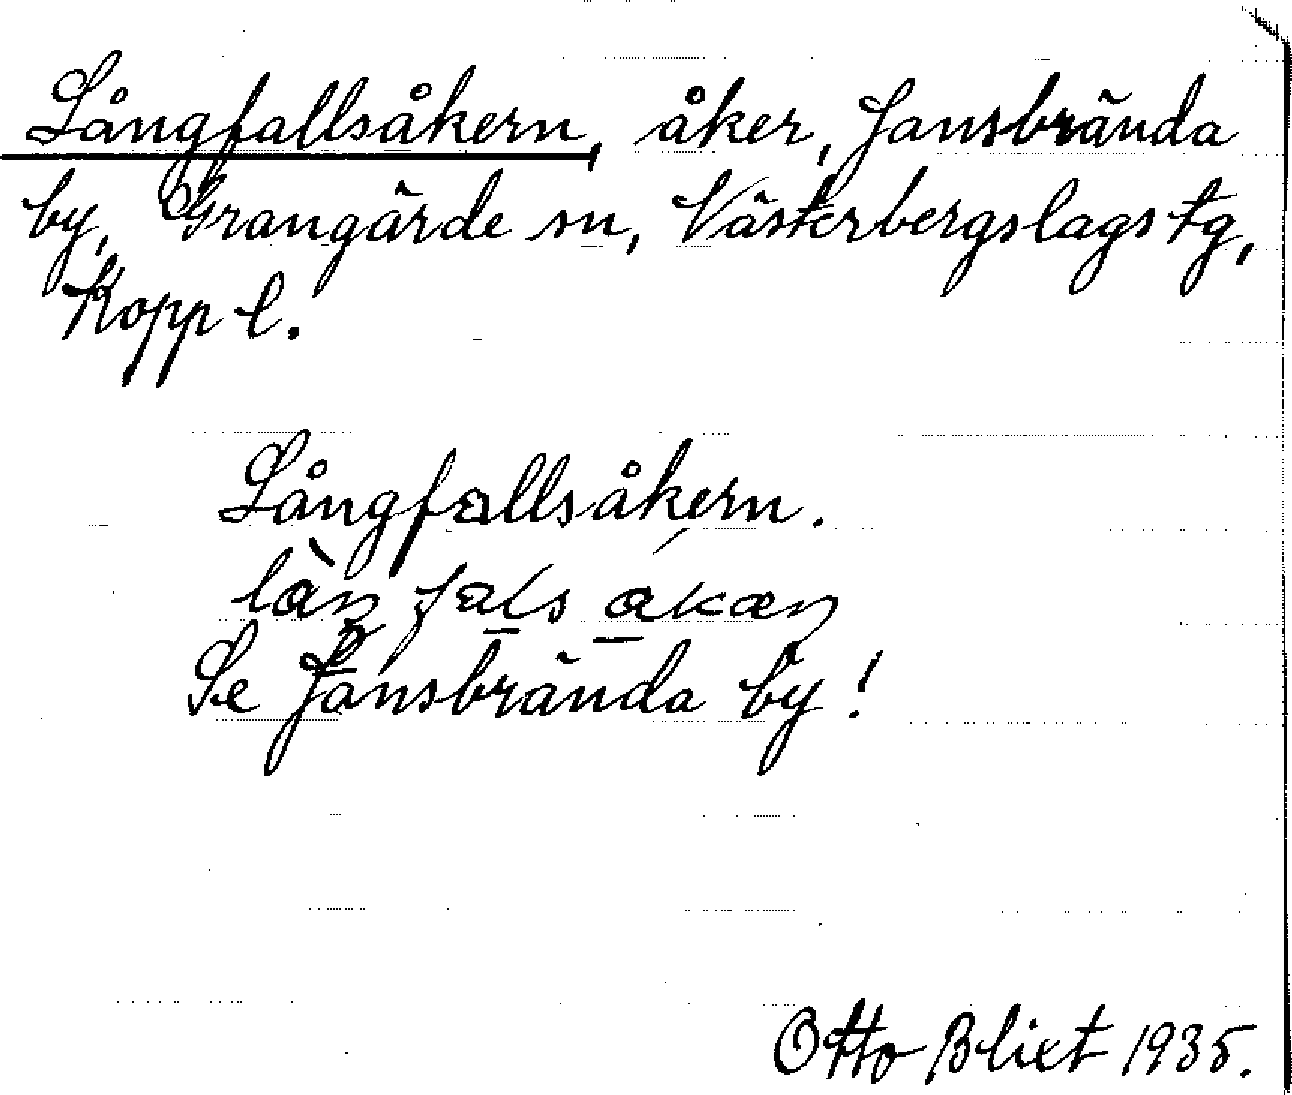 Långfallsåkern, åker, Jansbrända
by, Grangärde sn, Västerbergslags tg,
Kopp l.
Långfallsåkern.
Se Jansbrända by!
Otto Blixt 1935.